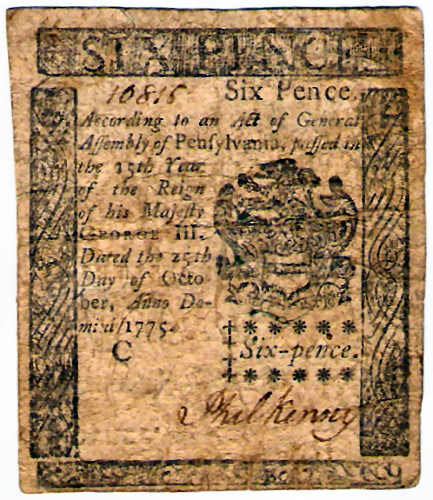 SIX PENCE
10816 Six Pence.
According to an Act of General
Aſſembly of Penſylvania, paſſed in
the 15th Year
of the Reign
of his Majeſty
GEORGE III.
Dated the 25th
Day of Octo-
ber, Anno Do-
mini 1775.
C
Six-pence.
Phil Kinsey